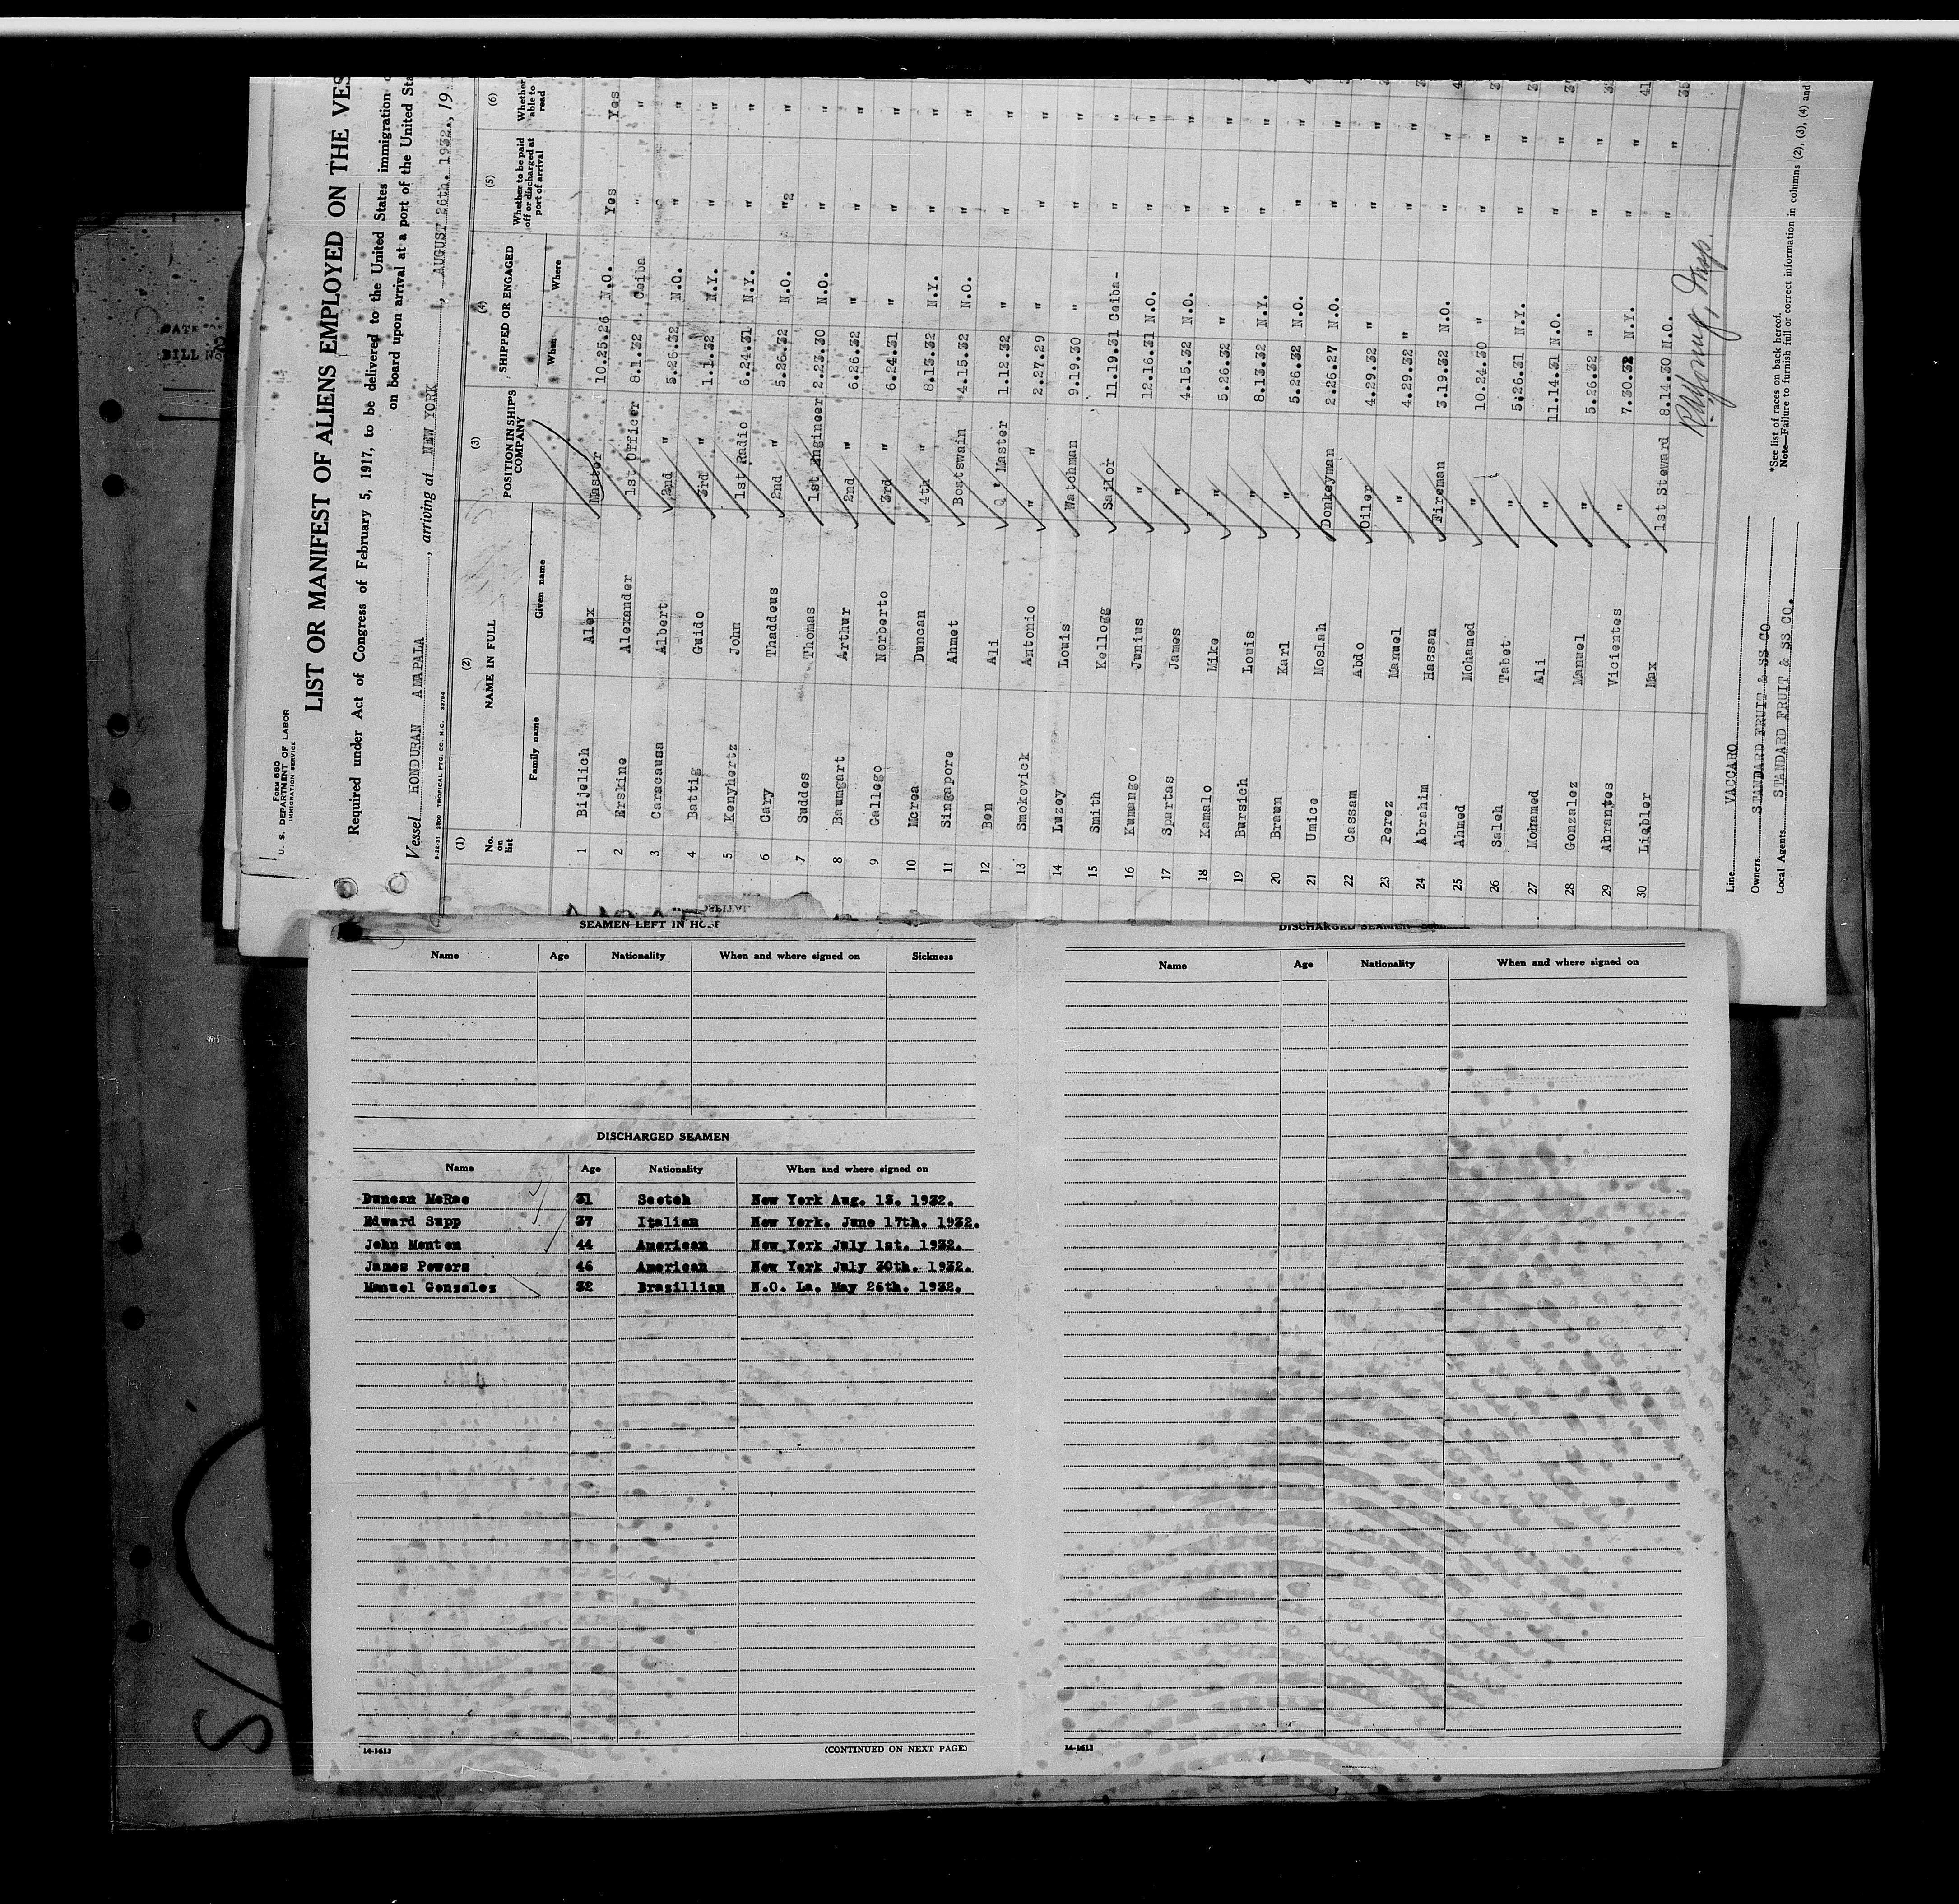 Form 680
U. S. DEPARTMENT OF LABOR
IMMIGRATION SERVICE
LIST OR MANIFEST OF ALIENS EMPLOYED ON THE VES
Required under Act of Congress of February 5, 1917, to be delivered to the United States immigration
on board upon arrival at a port of the United Sta
Vessel HONDURAN AMAPALA, arriving at NEW YORK, AUGUST 26th. 1932., 19
9-22-31 2500 TROPICAL PTG. CO. N.O. 33704
(1) (2) (3) (4) (5) (6)
No. on list NAME IN FULL POSITION IN SHIP'S COMPANY SHIPPED OR ENGAGED Whether to be paid off or discharged at port of arrival Whether able to read
Family name Given name When Where
1 Bijelich Alex Master 10.25.26 N.O. Yes Yes
2 Erskine Alexander 1st Officer 8.1.32 Ceiba " "
3 Caracausa Albert 2nd " 5.26.32 N.O. " "
4 Battig Guido 3rd " 1.1.32 N.Y. " "
5 Kenyhertz John 1st Radio 6.24.31 N.Y. " "
6 Cary Thaddeus 2nd " 5.26.32 N.O. "2 "
7 Suddes Thomas 1st Engineer 2.23.30 N.O. " "
8 Baumgart Arthur 2nd " 6.26.32 " " "
9 Gallego Norberto 3rd " 6.24.31 " " "
10 Mcrea Duncan 4th " 8.13.32 N.Y. " "
11 Singapore Ahmet Boatswain 4.15.32 N.O. " "
12 Ben Ali Q' Master 1.12.32 " " "
13 Smokovick Antonio " " 2.27.29 " " "
14 Luzey Louis Watchman 9.19.30 " " "
15 Smith Kellogg Sailor 11.19.31 Ceiba- " "
16 Kumango Junius " 12.16.31 N.O. " "
17 Spartas James " 4.15.32 N.O. " "
18 Kamalo Mike " 5.26.32 " " "
19 Bursich Louis " 8.13.32 N.Y. " "
20 Braun Karl " 5.26.32 N.O. " "
21 Umice Moslah Donkeyman 2.26.27 N.O. " "
22 Cassam Abdo Oiler 4.29.32 " " "
23 Perez Manuel " 4.29.32 " " "
24 Abrahim Hassan Fireman 3.19.32 N.O. " "
25 Ahmed Mohamed " 10.24.30 " " "
26 Saleh Tabet " 5.26.31 N.Y. " "
27 Mohamed Ali " 11.14.31 N.O. " "
28 Gonzalez Manuel " 5.26.32 " " "
29 Abrantes Vicientes " 7.30.32 N.Y. " "
30 Liebler Max 1st Steward 8.14.30 N.O. " "
Line VACCARO
Owners STANDARD FRUIT & SS CO
Local Agents STANDARD FRUIT & SS CO.
*See list of races on back hereof.
Note—Failure to furnish full or correct information in columns (2), (3), (4) and
SEAMEN LEFT IN HOSP
Name Age Nationality When and where signed on Sickness
DISCHARGED SEAMEN
Name Age Nationality When and where signed on
Duncan McRae 31 Scotch New York Aug. 13. 1932.
Edward Supp 37 Italian New York. June 17th. 1932.
John Menton 44 American New York July 1st. 1932.
James Powers 46 American New York July 30th. 1932.
Manuel Gonzalez 32 Brazillian N.O. La. May 26th. 1932.
14-1613 (CONTINUED ON NEXT PAGE)
DISCHARGED SEAMEN
Name Age Nationality When and where signed on
14-1613